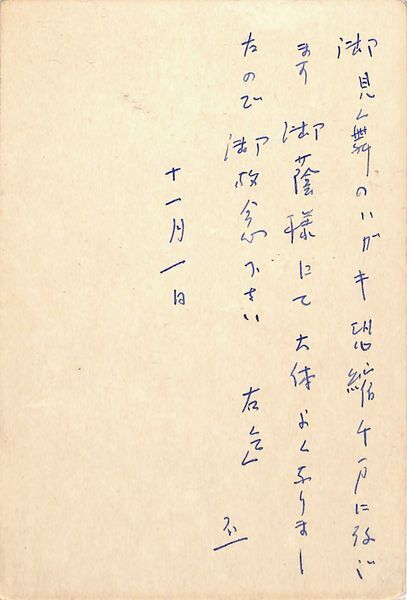 御見舞のハガキ恐縮千万に存じ
ます 御蔭様にて大体よくなりまし
たので御放念下さい 右迄
十一月一日